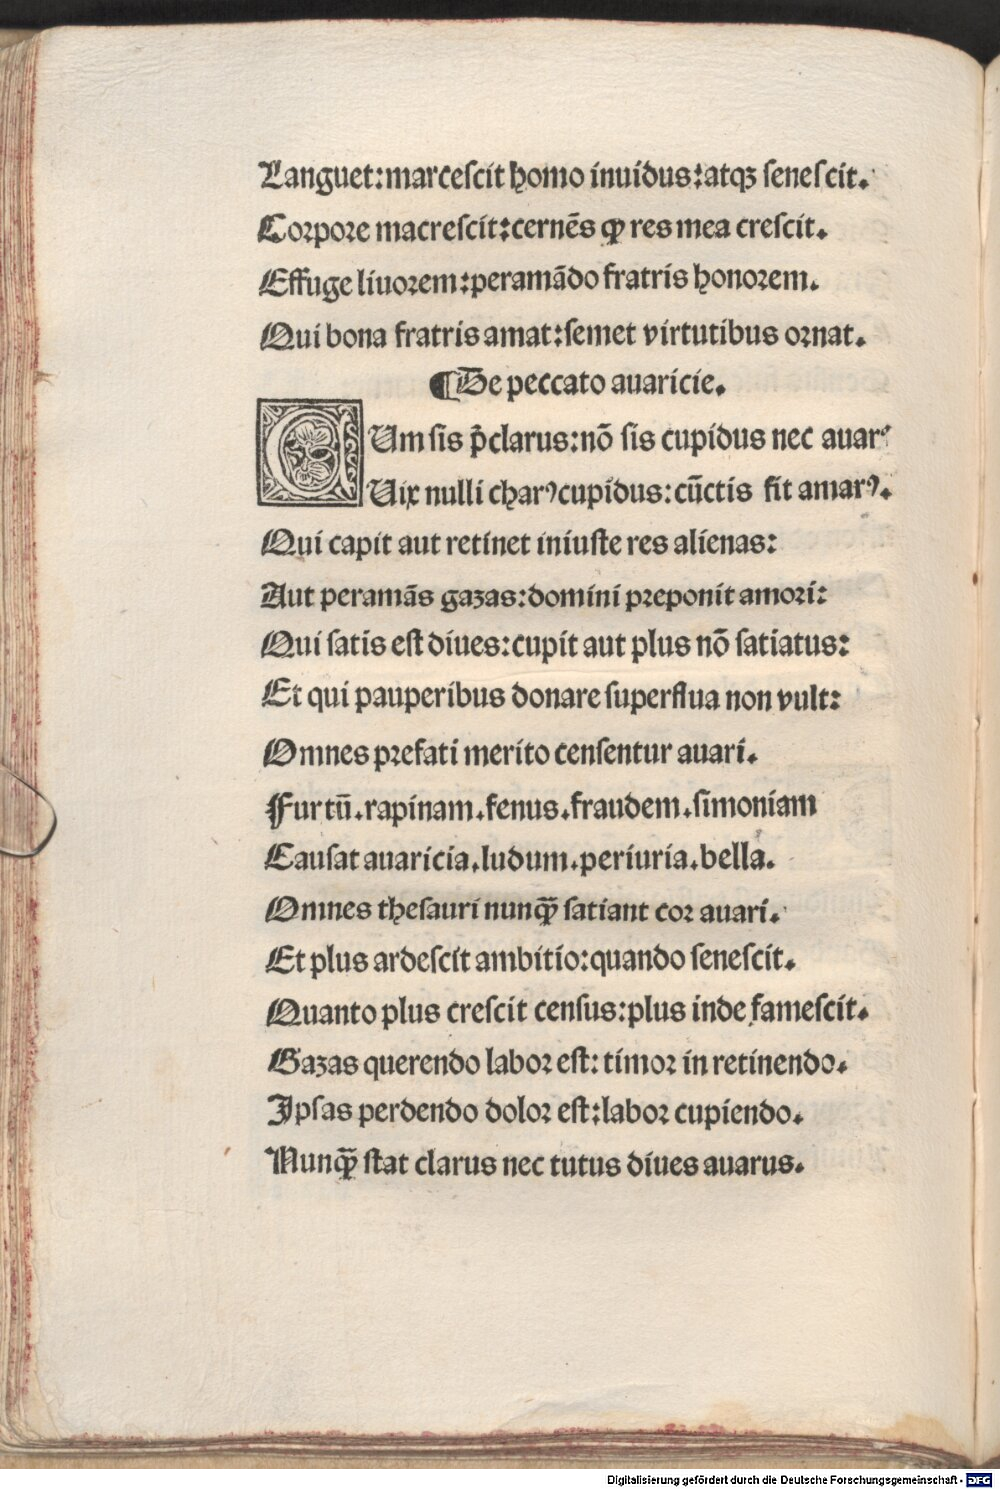 Languet:marcescit homo inuidus:atqꝫ senescit.
Corpore macrescit:cernēs ꝙ res mea crescit.
Effuge liuorem:peramādo fratris honorem.
Qui bona fratris amat:semet virtutibus ornat.
¶De peccato auaricie.
CUm sis p̄clarus:nō sis cupidus nec auarꝰ
Uix nulli charꝰcupidus:cūctis fit amarꝰ.
Qui capit aut retinet iniuste res alienas:
Aut peramās gazas:domini preponit amori:
Qui satis est diues:cupit aut plus nō satiatus:
Et qui pauperibus donare superflua non vult:
Omnes prefati merito censentur auari.
Furtū.rapinam.fenus.fraudem.simoniam
Causat auaricia.ludum.periuria.bella.
Omnes thesauri nunꝙ̄ satiant cor auari.
Et plus ardescit ambitio:quando senescit.
Quanto plus crescit census:plus inde famescit.
Gazas querendo labor est:timor in retinendo.
Ipsas perdendo dolor est:labor cupiendo.
Nunꝙ̄ stat clarus nec tutus diues auarus.
Digitalisierung gefördert durch die Deutsche Forschungsgemeinschaft - DFG